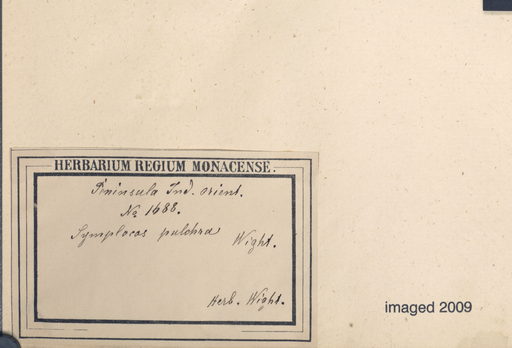 HERBARIUM REGIUM MONACENSE.
Peninsula Ind. orient.
No 1688.
Symplocos pulchra Wight.
Herb. Wight.
imaged 2009